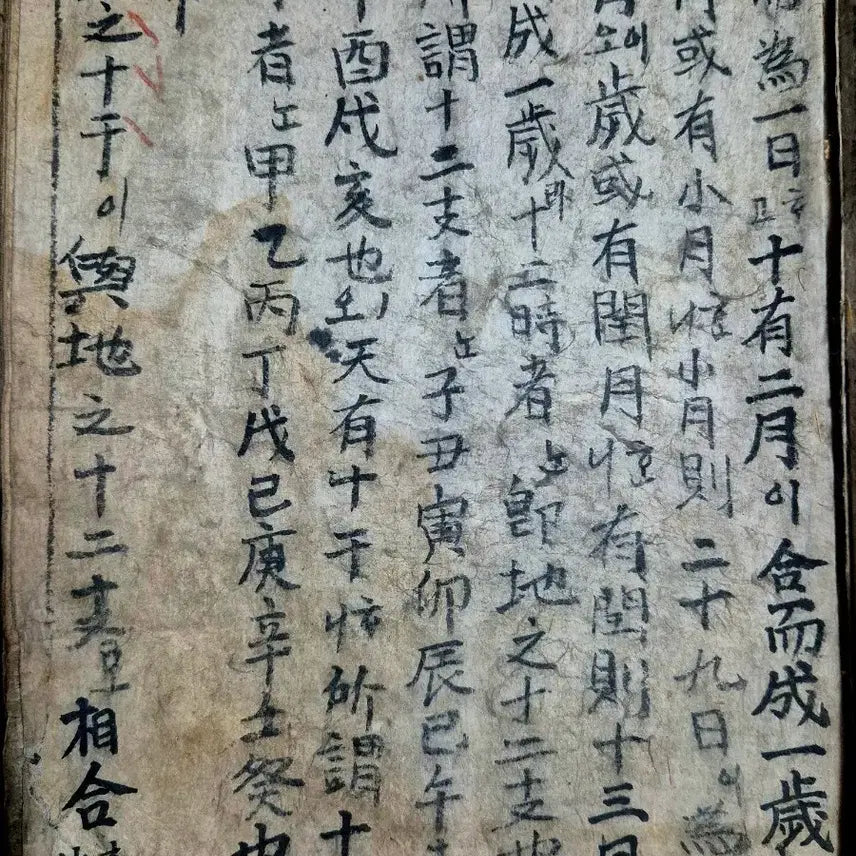 為一日十有二月이合而成一歲
或有小月小月則二十九日이為
歲或有閏月有閏則十三月
成一歲十二時者上即地之十二支也
謂十二支者上子丑寅卯辰巳午
酉戌亥也天有十干所謂十
者上甲乙丙丁戊己庚辛壬癸也
之十干이與地之十二相合